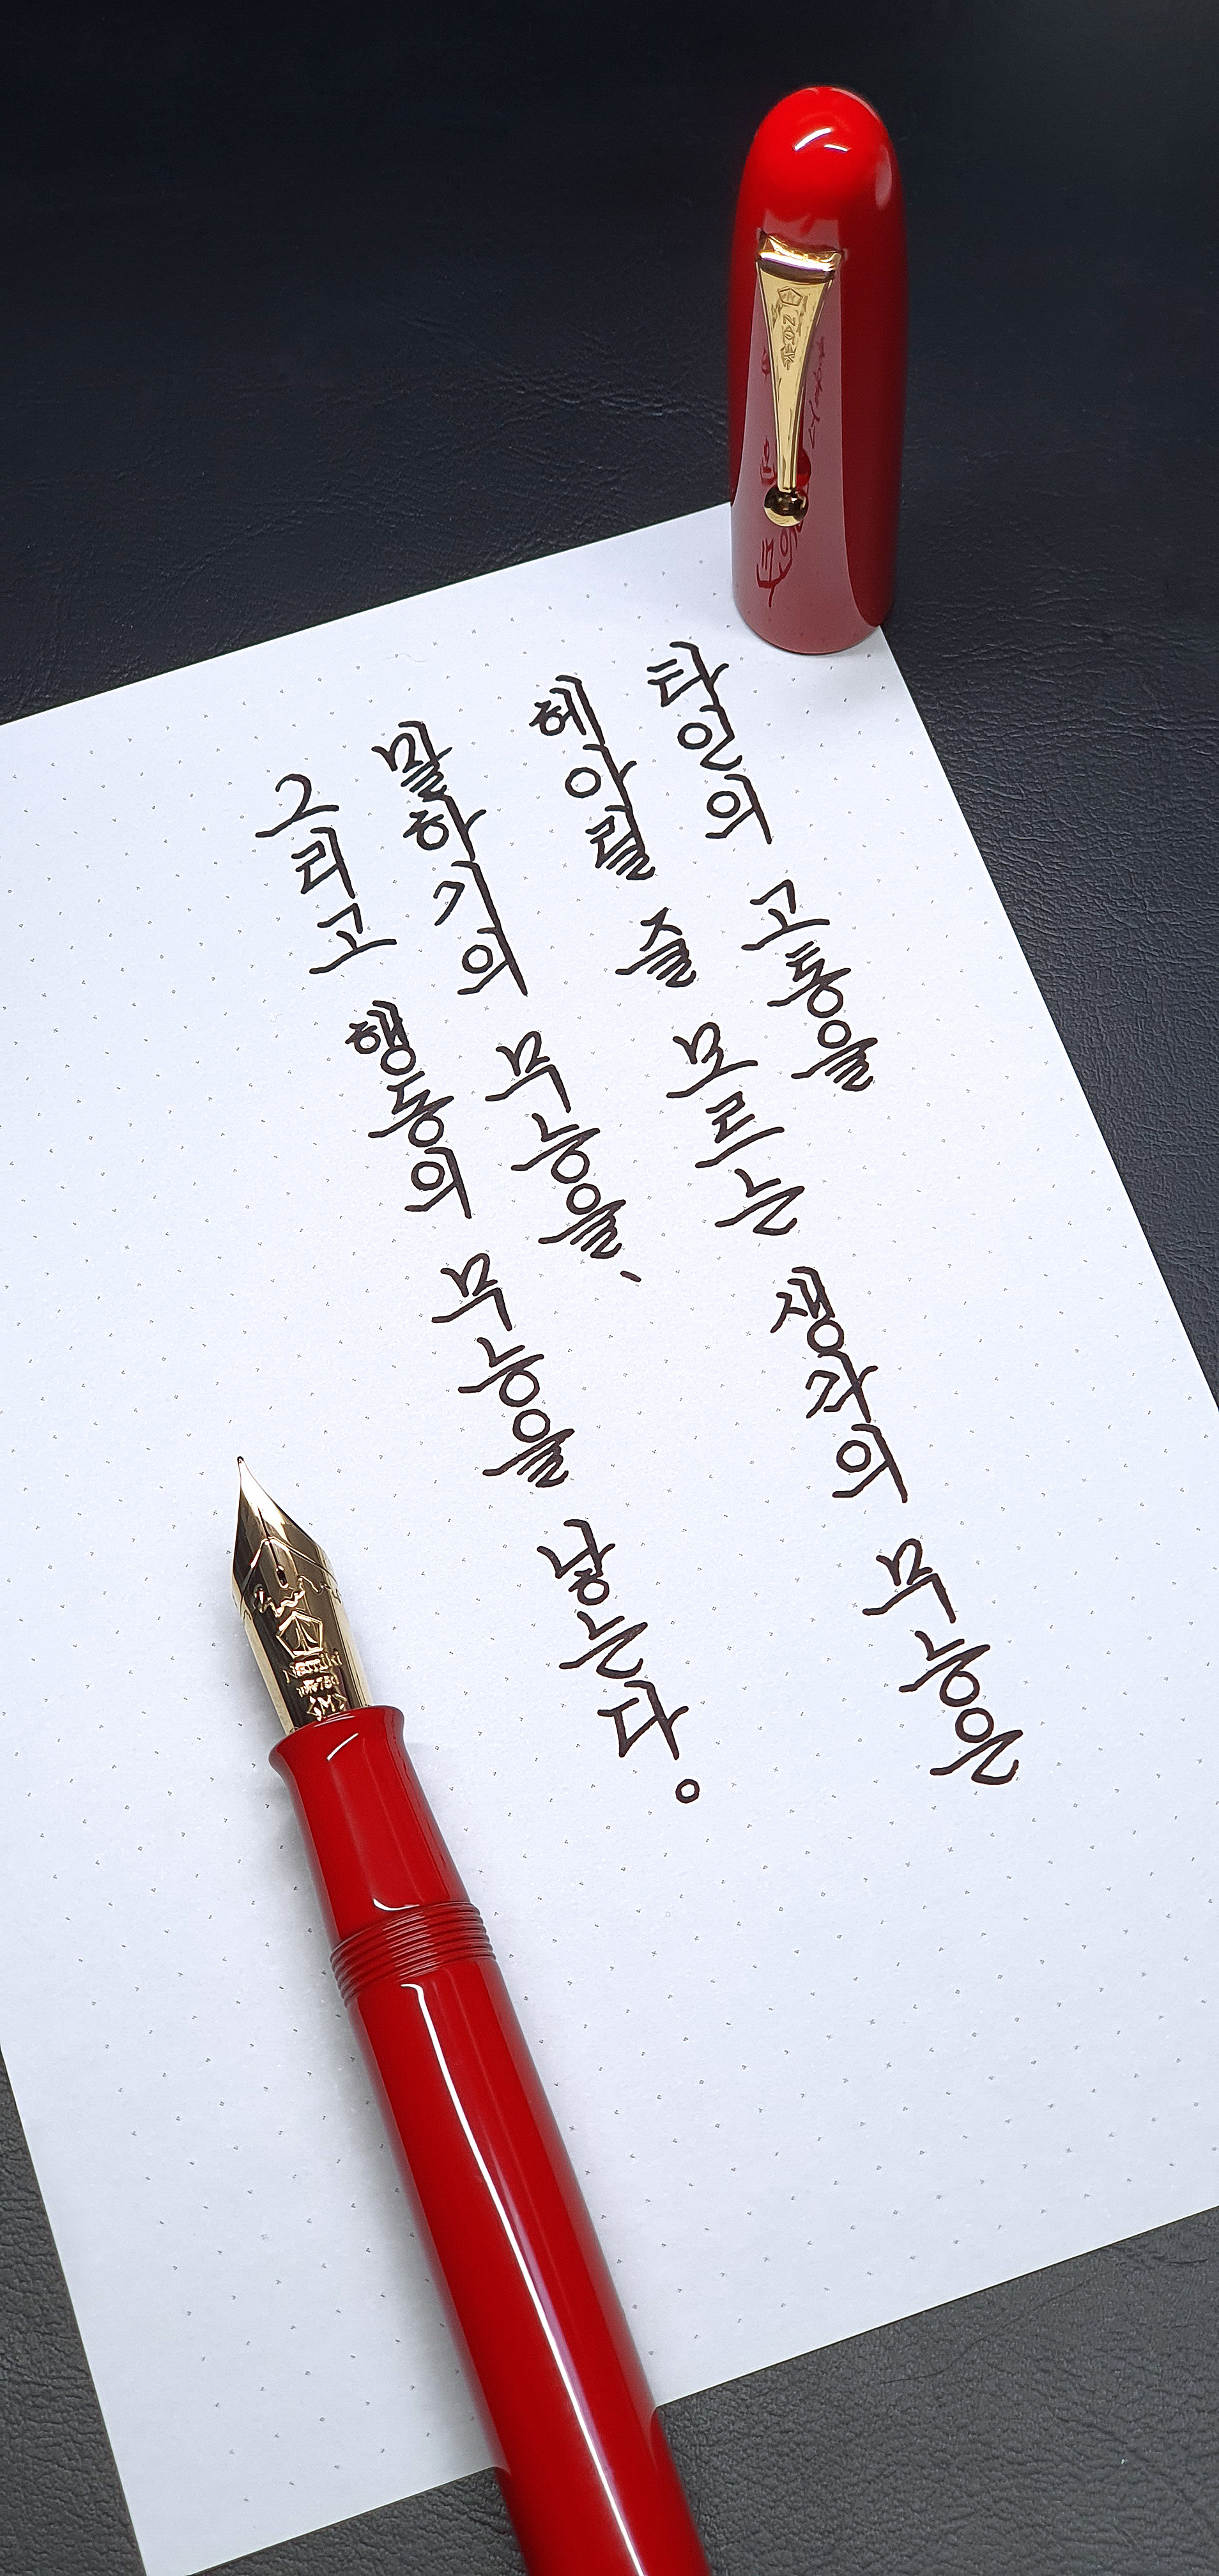 타인의 고통을
헤아릴 줄 모르는 생각의 무능은
말하기의 무능을、
그리고 행동의 무능을 낳는다。
Namiki